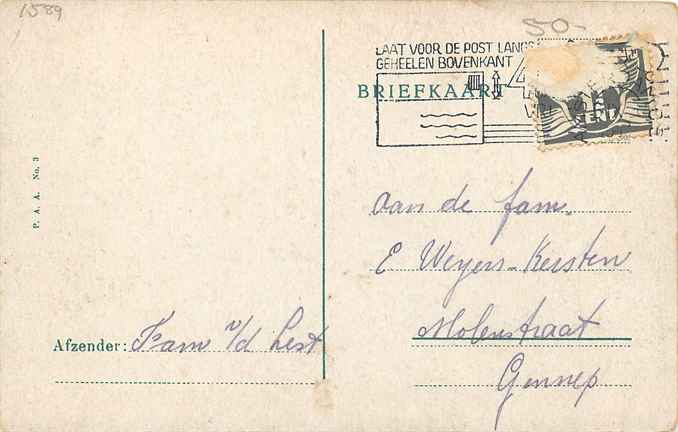 1589
50-
LAAT VOOR DE POST LANGS
GEHEELEN BOVENKANT
BRIEFKAART
P. A. A. No. 3
aan de fam.
E Weyers-Kersten
Molenstraat
Gennep
Afzender: Fam v/d Lest